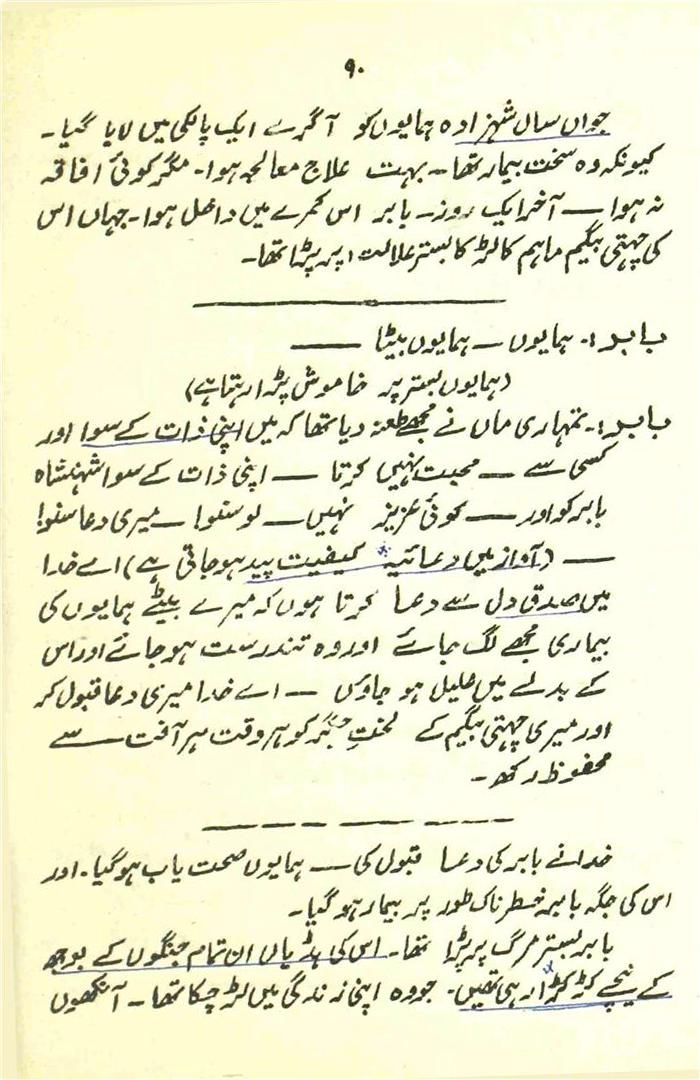 ۹۰
جواں سال شہزادہ ہمایوں کو آگرے ایک پالکی میں لایا گیا۔
کیونکہ وہ سخت بیمار تھا۔ بہت علاج معالجہ ہوا۔ مگر کوئی افاقہ
نہ ہوا — آخر ایک روز۔ بابر اس کمرے میں داخل ہوا۔ جہاں اس
کی چہتی بیگم ماہم کا لڑکا بستر علالت پر پڑا تھا۔
بابر:۔ ہمایوں — ہمایوں بیٹا —
(ہمایوں بستر پر خاموش پڑا رہتا ہے)
بابر:۔ تمہاری ماں نے مجھے طعنہ دیا تھا کہ میں اپنی ذات کے سوا اور
کسی سے — محبت نہیں کرتا — اپنی ذات کے سوا شہنشاہ
بابر کو اور — کوئی عزیز نہیں — لو سنو! — میری دعا سنو!
— (آواز میں دعائیہ کیفیت پیدا ہو جاتی ہے) اے خدا
میں صدق دل سے دعا کرتا ہوں کہ میرے بیٹے ہمایوں کی
بیماری مجھے لگ جائے اور وہ تندرست ہو جائے اور اس
کے بدلے میں علیل ہو جاؤں — اے خدا میری دعا قبول کر
اور میری چہتی بیگم کے لخت جگر کو ہر وقت ہر آفت سے
محفوظ رکھ۔
خدا نے بابر کی دعا قبول کی — ہمایوں صحت یاب ہو گیا۔ اور
اس کی جگہ بابر خطرناک طور پر بیمار ہو گیا۔
بابر بستر مرگ پر پڑا تھا۔ اس کی ہڈیاں ان تمام جنگوں کے بوجھ
کے نیچے کڑکڑا رہی تھیں۔ جو وہ اپنی زندگی میں لڑ چکا تھا۔ آنکھوں